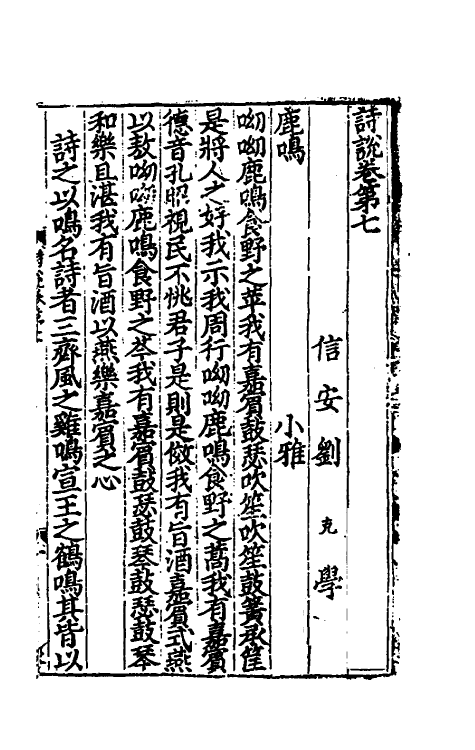 詩說卷第七
信安劉克學
鹿鳴 小雅
呦呦鹿鳴食野之苹我有嘉賔鼓瑟吹笙吹笙鼓簧承筐
是將人之好我示我周行呦呦鹿鳴食野之蒿我有嘉賔
德音孔昭視民不恌君子是則是傚我有旨酒嘉賔式燕
以敖呦呦鹿鳴食野之芩我有嘉賔鼓瑟鼓琴鼓瑟鼓琴
和樂且湛我有旨酒以燕樂嘉賔之心
詩之以鳴名詩者三齊風之雞鳴宣王之鶴鳴其皆以